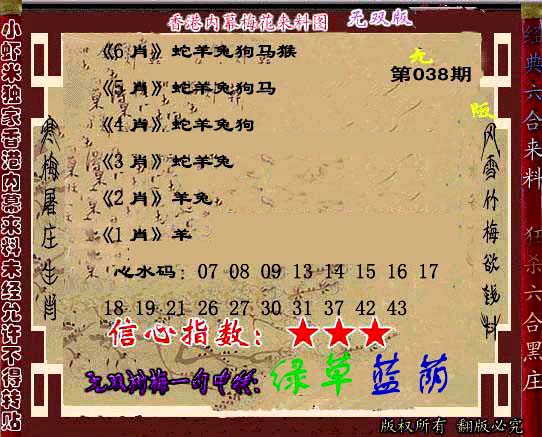 香港内幕梅花来料图 无双版
小虾米独家香港内幕来料未经允许不得转贴
经典六合来料 狂杀六合黑庄
第038期
寒梅屠庄生肖
风雪竹梅欲钱料
《6 肖》蛇羊兔狗马猴
《5 肖》蛇羊兔狗马
《4 肖》蛇羊兔狗
《3 肖》蛇羊兔
《2 肖》羊兔
《1 肖》羊
心水码：07 08 09 13 14 15 16 17
18 19 21 26 27 30 31 37 42 43
信心指数：★★★
无双剑梅一句中特：绿草蓝荫
版权所有 翻版必究